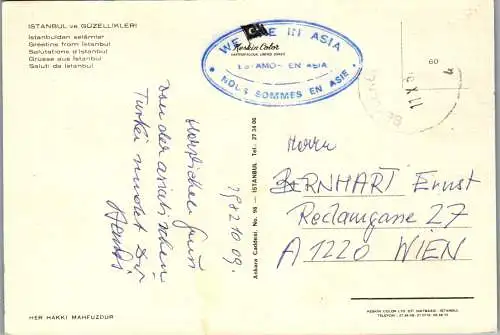 ISTANBUL ve GÜZELLİKLERİ
İstanbuldan selâmlar
Greetins from İstanbul
Salutations d'İstanbul
Grüsse aus İstanbul
Saluti da İstanbul
WE ARE IN ASIA
Keskin Color
ESTAMOS EN ASIA
NOUS SOMMES EN ASIE
60
Herzlichen Gruß
von der asiatischen
Türkei sendet Dir
1982 10 09.
Ankara Caddesi, No. 98 — İSTANBUL Tel.: 27 34 06
Herrn
BERNHART Ernst
Reclamgasse 27
A 1220 WIEN
HER HAKKI MAHFUZDUR
KESKIN COLOR LTD. ŞT. MATBAASI - İSTANBUL